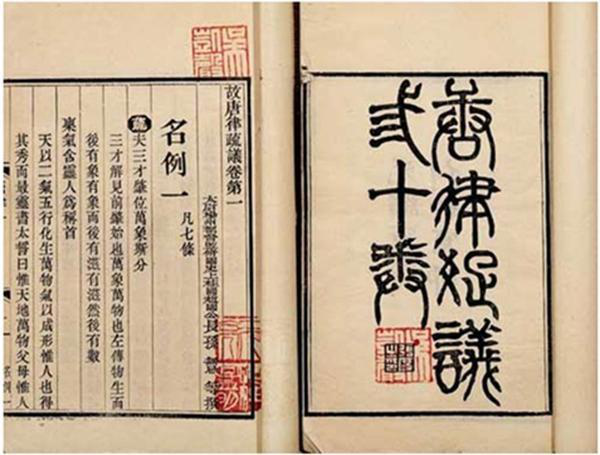 唐律疏議
弎十卷
故唐律疏議卷第一
長孫無忌等撰
名例一 凡七條
疏 夫三才肇位萬象斯分
三才解見前肇始也萬象萬物也左傳物生而
後有象有象而後有滋有滋然後有數
稟氣含靈人爲稱首
天以二氣五行化生萬物氣以成形惟人也得
其秀而最靈書太誓曰惟天地萬物父母惟人
名例一